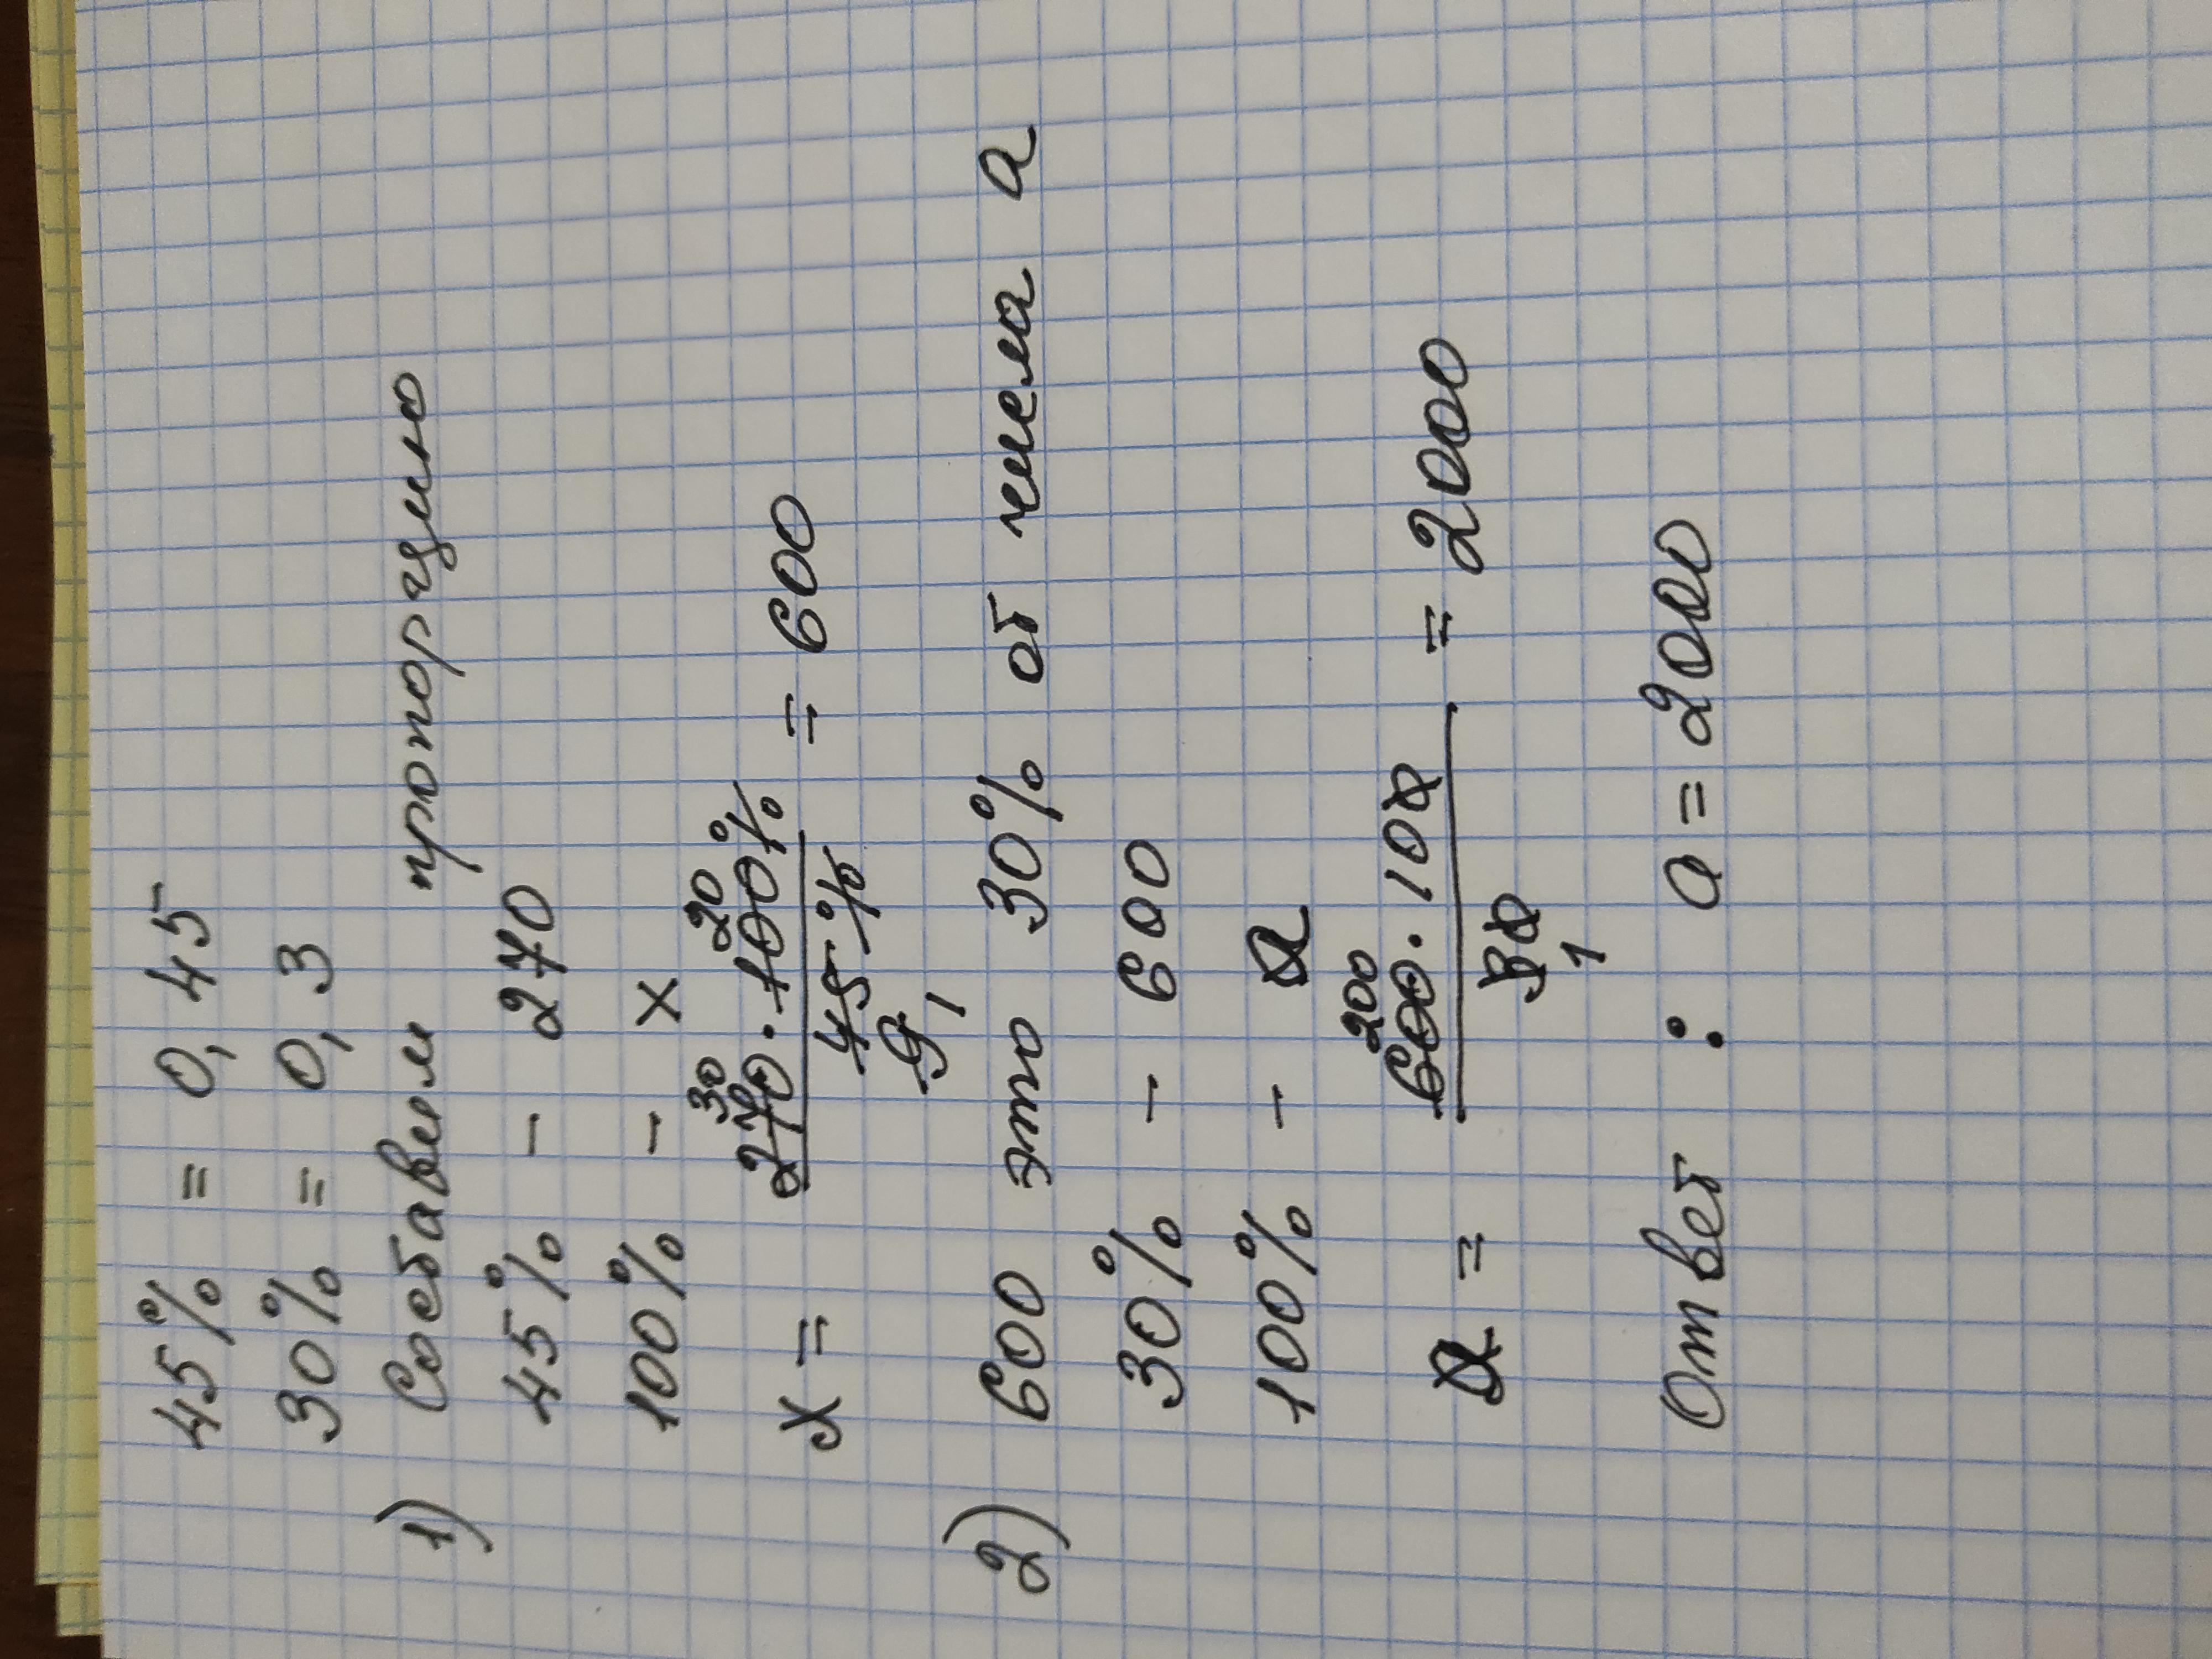 45% = 0,45
30% = 0,3
1) Составим пропорцию
45% - 270
100% - x
30 20
x = 270 · 100% = 600
45%
9 1
2) 600 это 30% от числа a
30% - 600
100% - a
200
a = 600 · 100 = 2000
30
1
Ответ : a = 2000